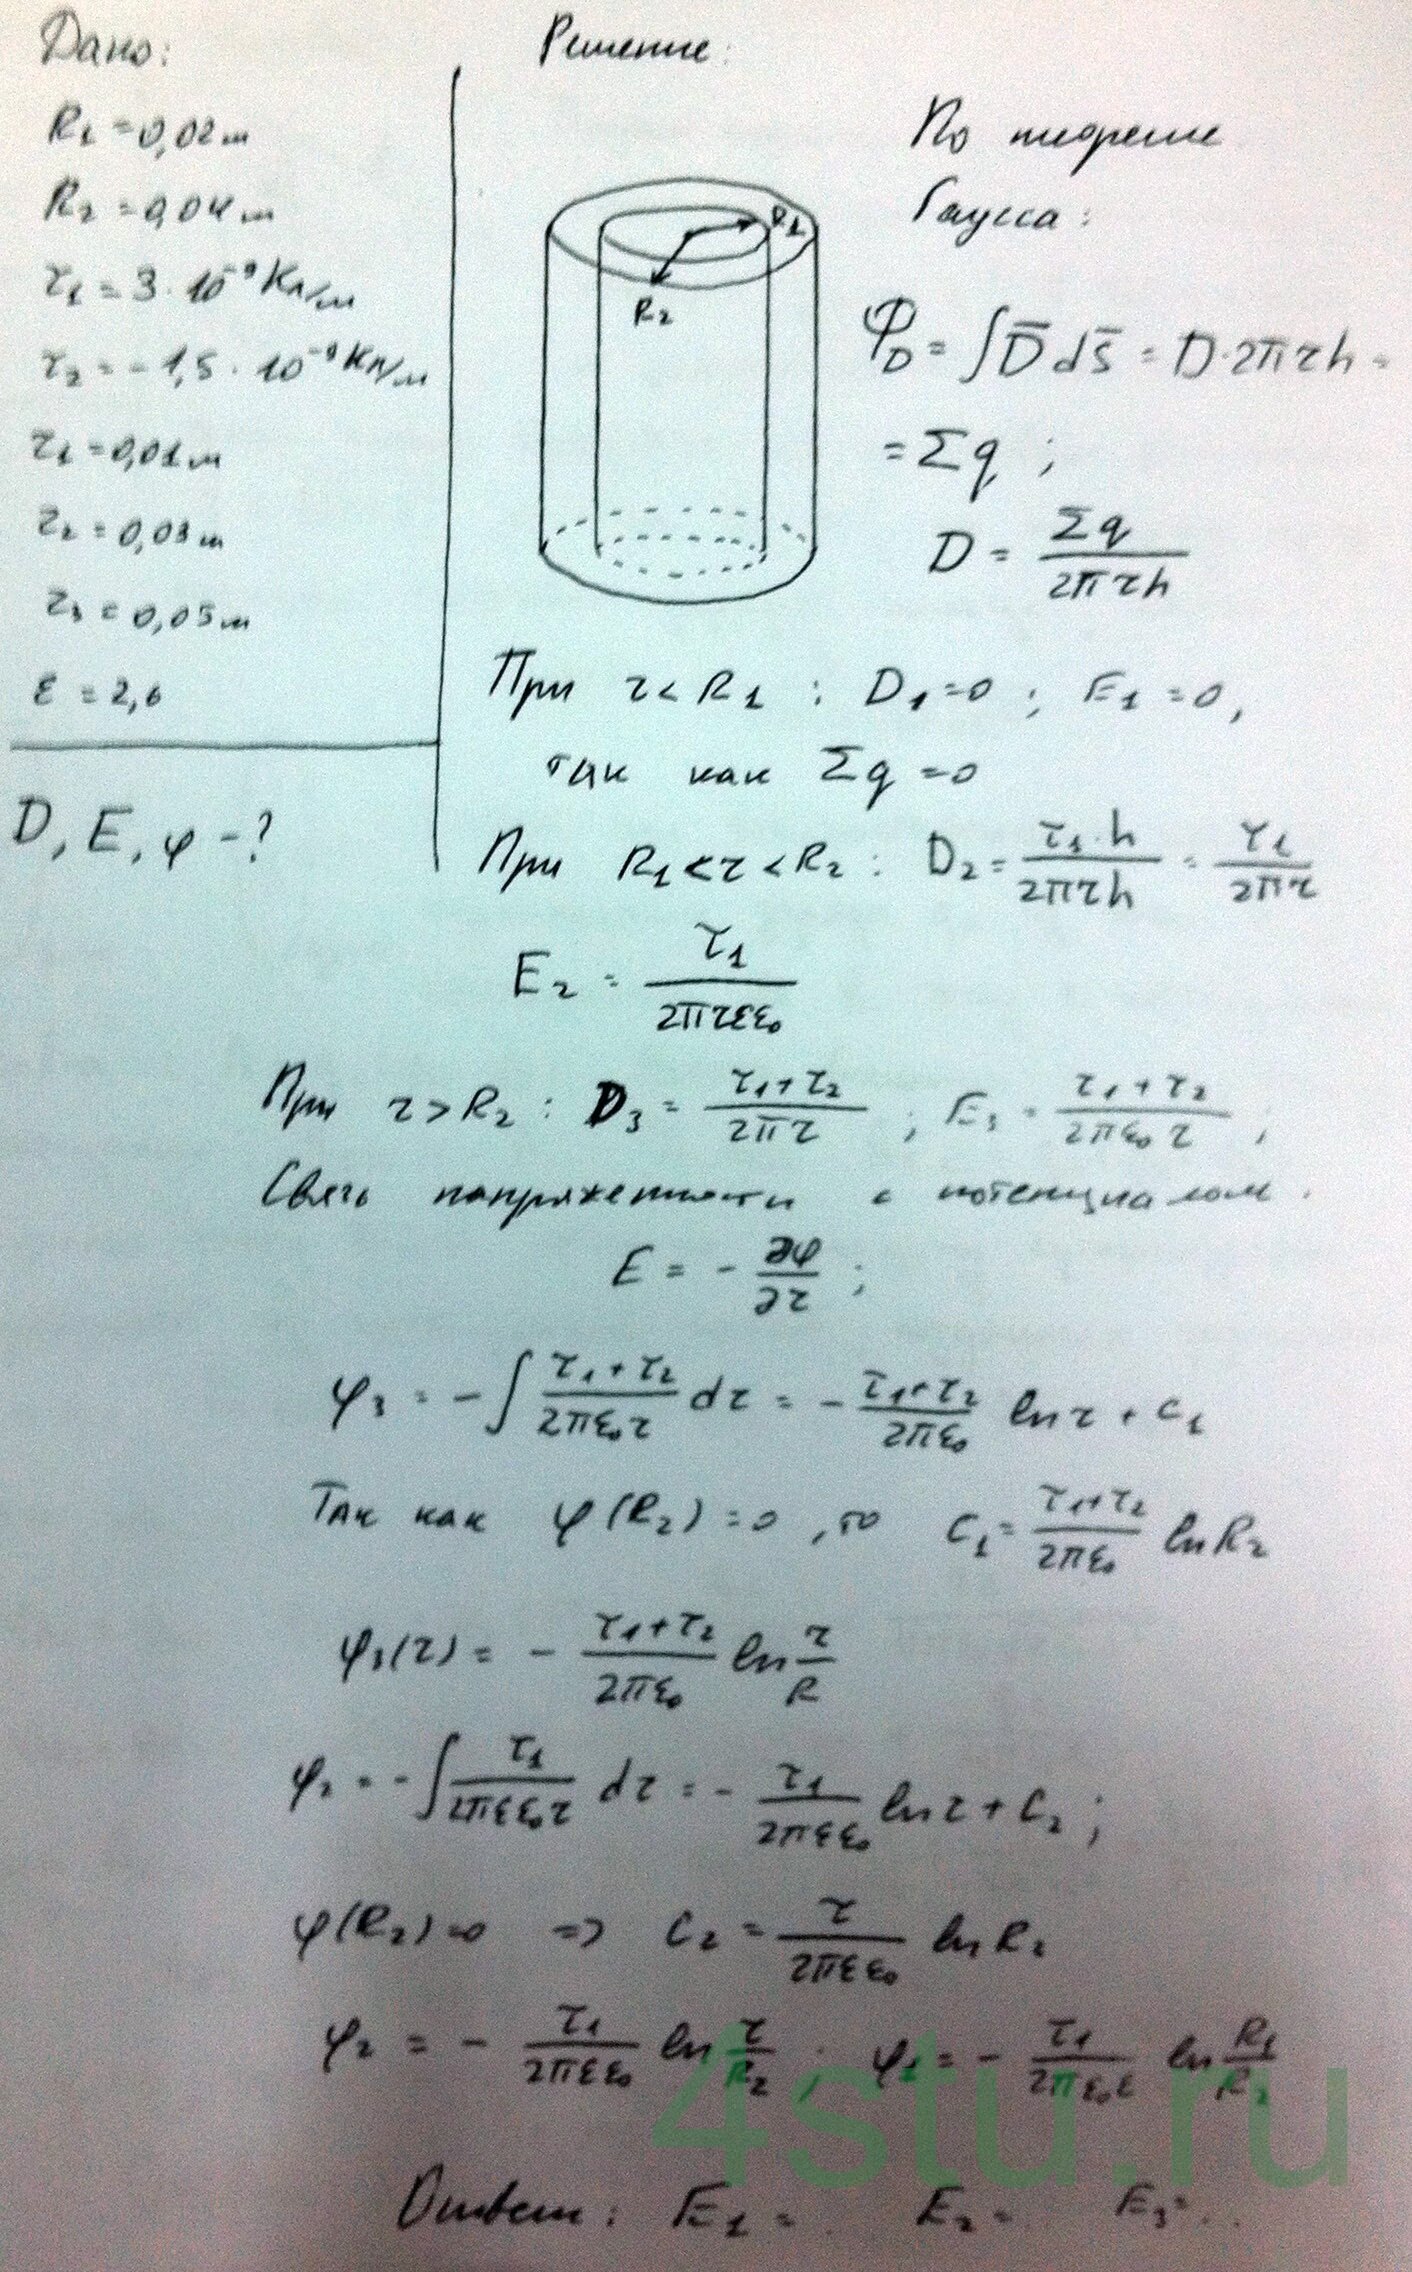 Дано:
R₁ = 0,02 м
R₂ = 0,04 м
τ₁ = 3 · 10⁻⁹ Кл/м
τ₂ = -1,5 · 10⁻⁹ Кл/м
r₁ = 0,01 м
r₂ = 0,03 м
r₃ = 0,05 м
ε = 2,6
D, E, φ - ?
Решение:
R₁
R₂
По теореме
Гаусса:
Φ_D = ∫D̅ dS̅ = D·2πrh =
= Σq ;
D = Σq / 2πrh
При r < R₁ : D₁ = 0 ; E₁ = 0,
так как Σq = 0
При R₁ < r < R₂ : D₂ = τ₁·h / 2πrh = τ₁ / 2πr
E₂ = τ₁ / 2πrεε₀
При r > R₂ : D₃ = τ₁+τ₂ / 2πr ; E₃ = τ₁+τ₂ / 2πε₀r ;
Связь напряженности с потенциалом:
E = - ∂φ/∂r ;
φ₃ = - ∫ τ₁+τ₂ / 2πε₀r dr = - τ₁+τ₂ / 2πε₀ ln r + C₁
Так как φ(R₂) = 0, то C₁ = τ₁+τ₂ / 2πε₀ ln R₂
φ₃(r) = - τ₁+τ₂ / 2πε₀ ln r/R
φ₂ = - ∫ τ₁ / 2πεε₀r dr = - τ₁ / 2πεε₀ ln r + C₂ ;
φ(R₂) = 0 => C₂ = τ / 2πεε₀ ln R₂
φ₂ = - τ₁ / 2πεε₀ ln r/R₂ ; φ₁ = - τ₁ / 2πε₀ε ln R₁/R₂
Ответ: E₁ = .. E₂ = .. E₃ = ..
4stu.ru